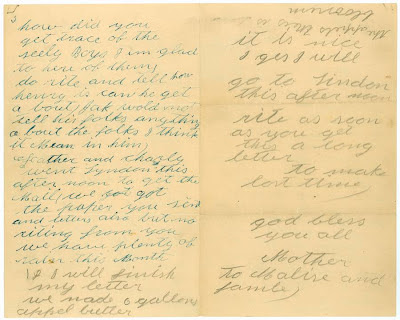 how did you
get trace of the
seely Boys I im glad
to hire of them
do rite and tell how
henry is can he get
a bout, Jak wold not
tell his folks anything
a bout the folks I think
it Mean in him,
father and Charly
went Lyndon this
after noon to get the
Mail, we got
the paper you sen
and letters also but no
riting from you
we have plenty of
rain this Month
I will finish
my letter
we made 6 gallons
appel butter
it is nice
I ges I will
go to Lindon
this after noon
rite as soon
as you get
this a long
letter
to make
lost time,
god bless
you all
Mother
to Malise and
famley